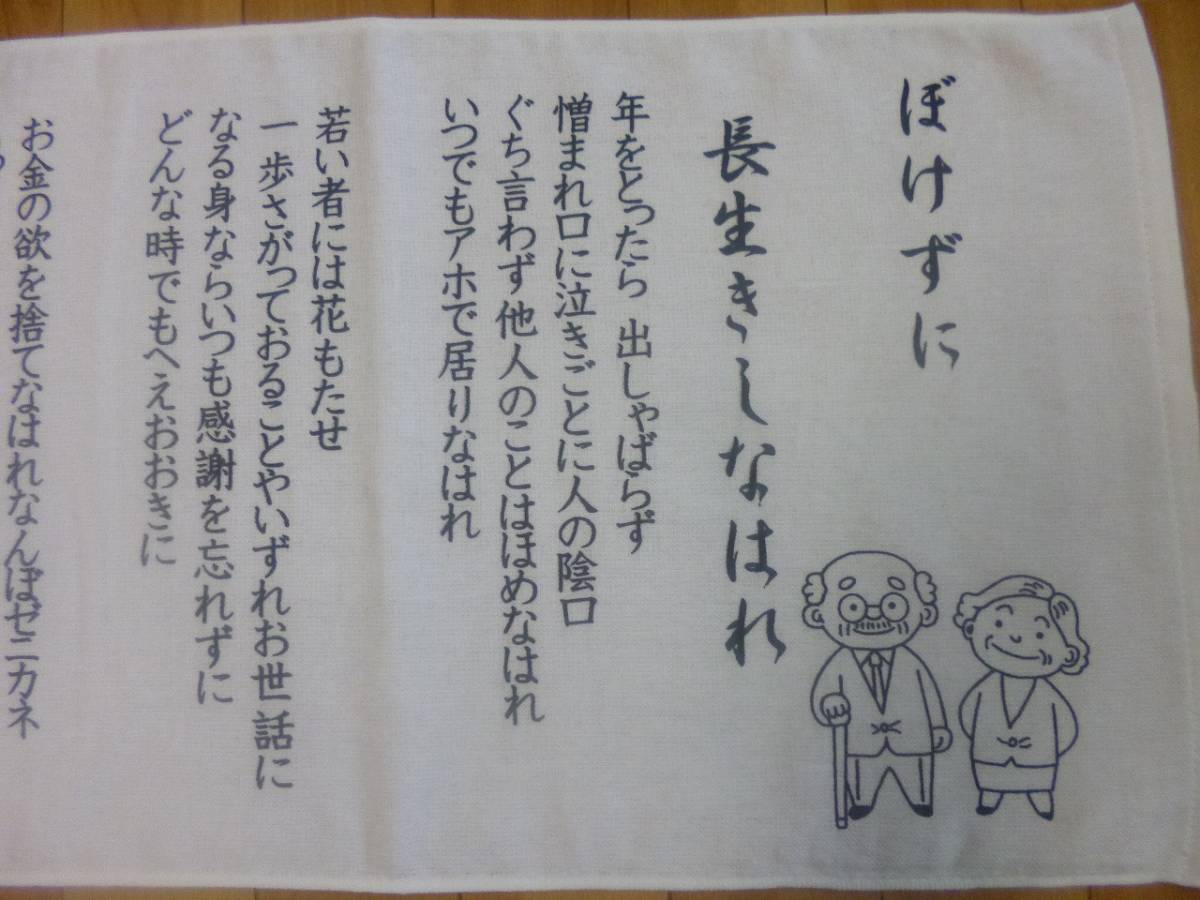 ぼけずに
長生きしなはれ
年をとったら 出しゃばらず
憎まれ口に泣きごとに人の陰口
ぐち言わず他人のことはほめなはれ
いつでもアホで居りなはれ
若い者には花もたせ
一歩さがっておることやいずれお世話に
なる身ならいつも感謝を忘れずに
どんな時でもへえおおきに
お金の欲を捨てなはれなんぼゼニカネ